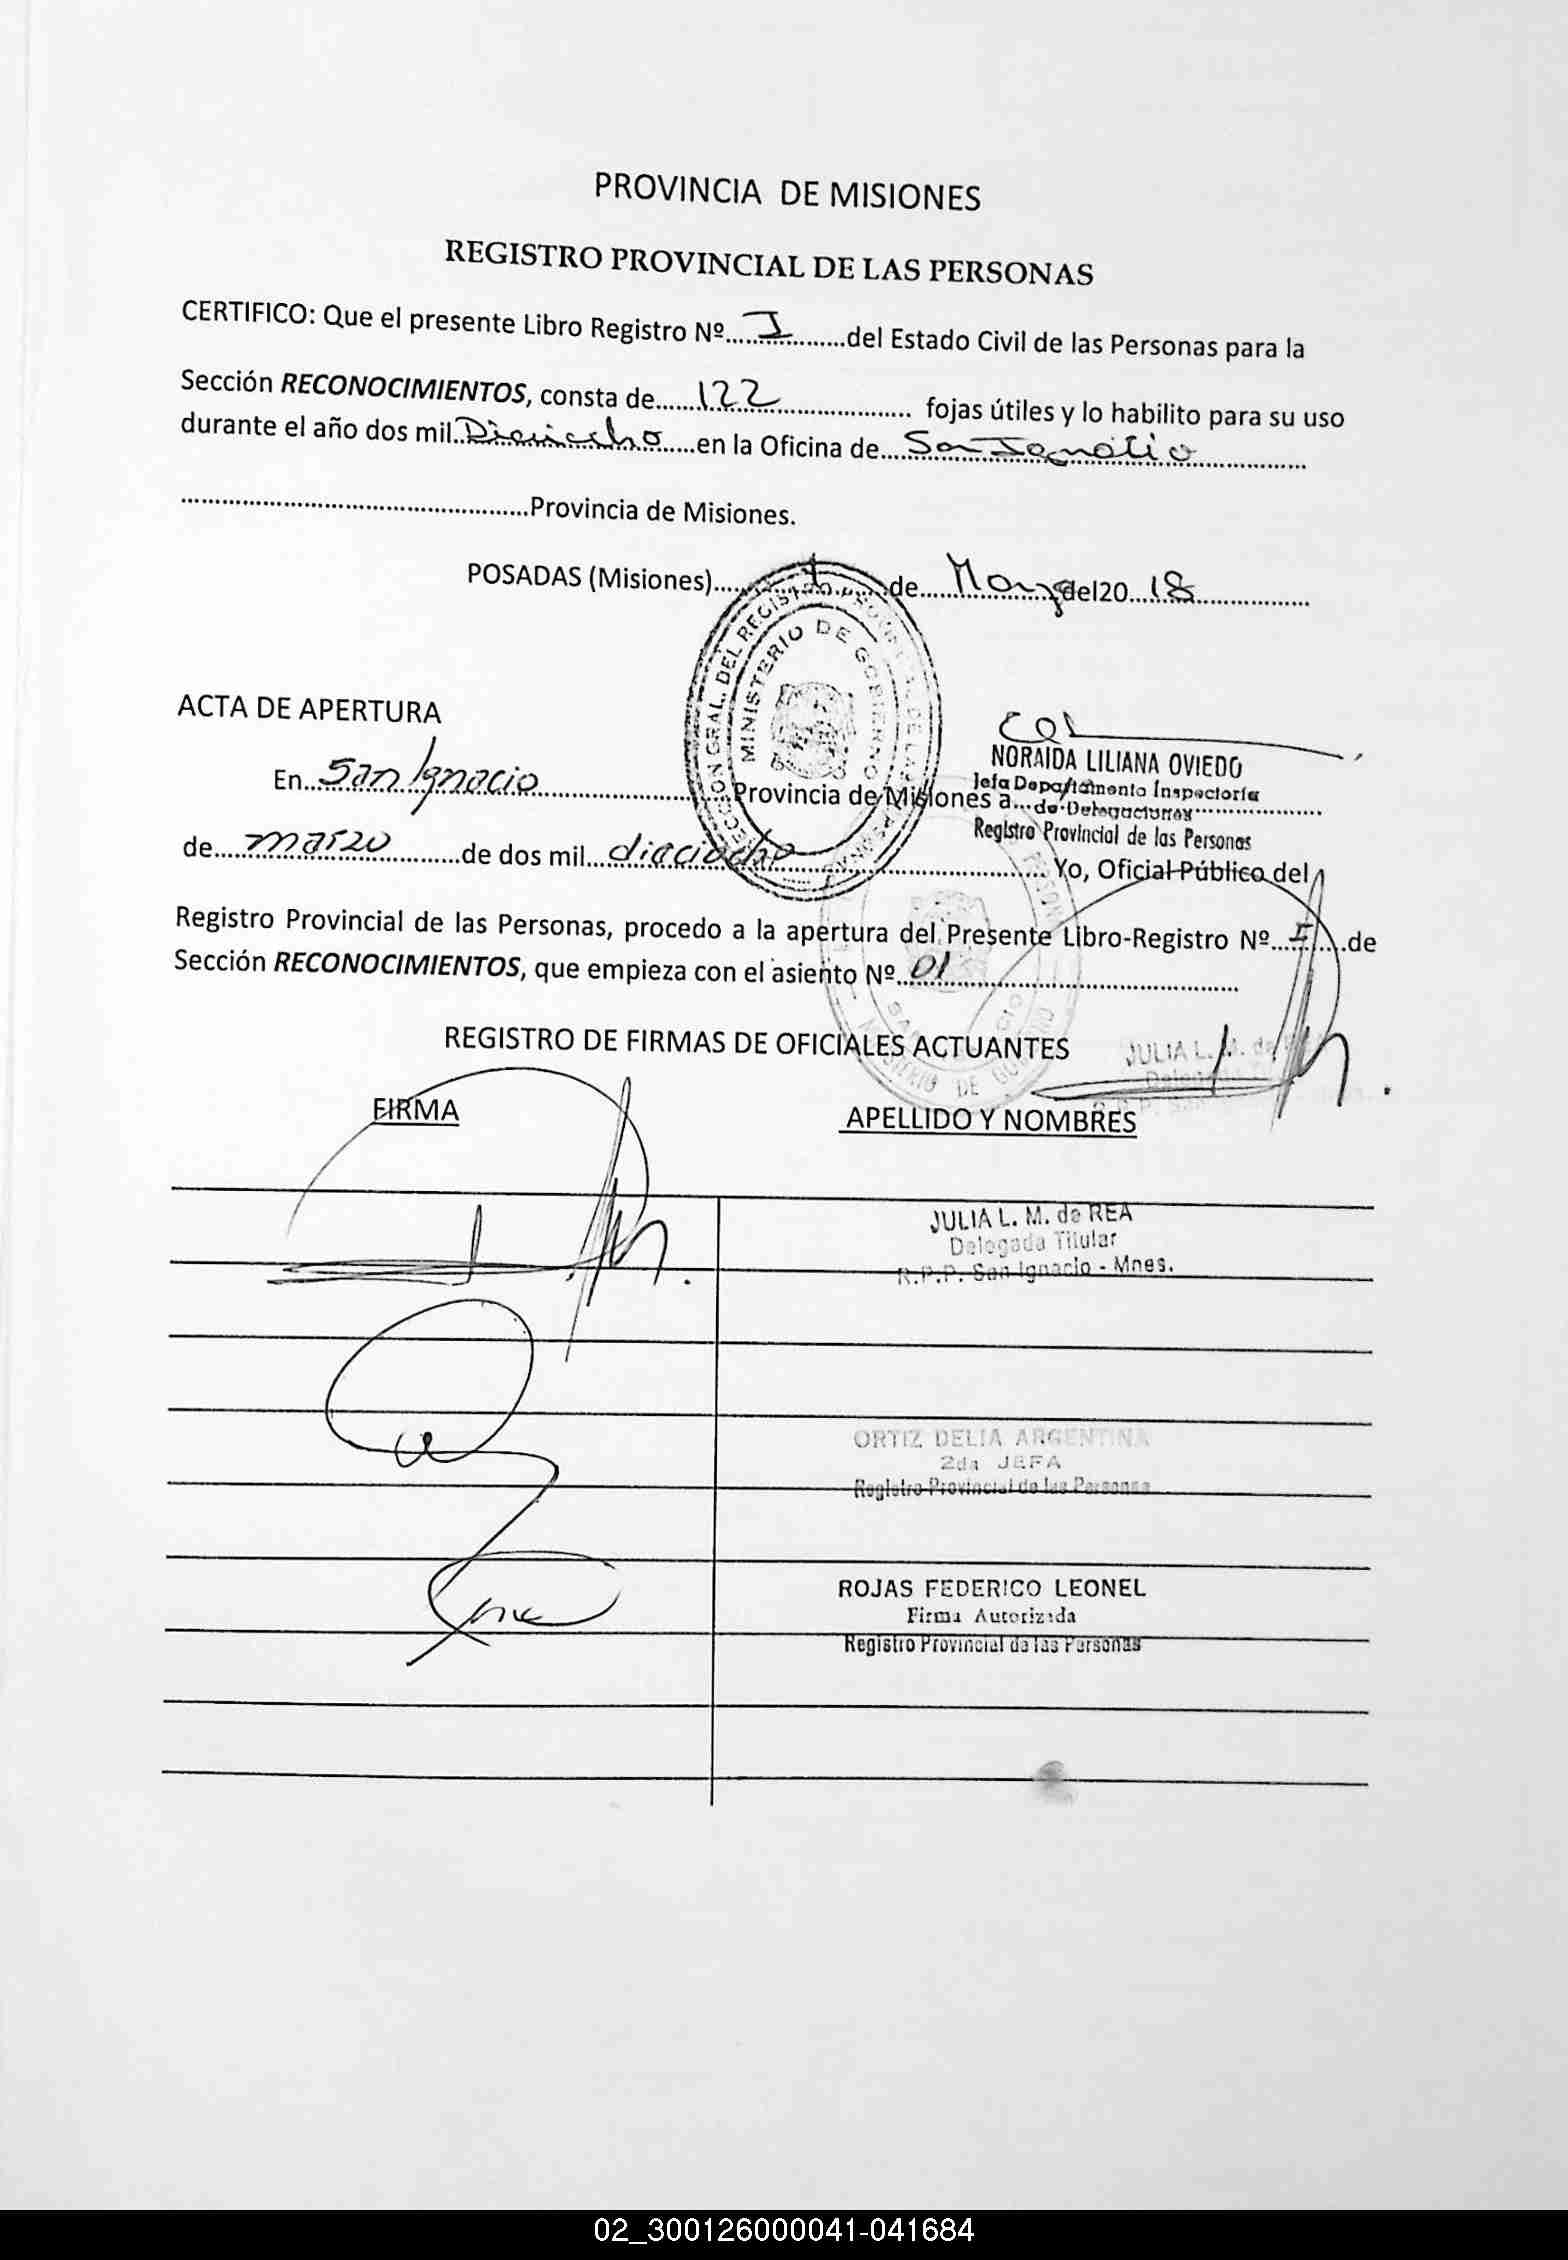 PROVINCIA DE MISIONES
REGISTRO PROVINCIAL DE LAS PERSONAS
CERTIFICO: Que el presente Libro Registro Nº.....I.....del Estado Civil de las Personas para la
Sección RECONOCIMIENTOS, consta de.....122..... fojas útiles y lo habilito para su uso
durante el año dos mil..Dieciocho.....en la Oficina de....San Ignacio.....
.....Provincia de Misiones.
POSADAS (Misiones).....1.....de.....Marzo del 20...18.....
DIRECCION GRAL. DEL REGISTRO PROVINCIAL DE LAS PERSONAS
MINISTERIO DE GOBIERNO
ACTA DE APERTURA
NORAIDA LILIANA OVIEDO
Jefa Departamento Inspectoría
de Delegaciones
Registro Provincial de las Personas
En..San Ignacio.....Provincia de Misiones a.....
de....marzo.....de dos mil...dieciocho..... Yo, Oficial Público del
Registro Provincial de las Personas, procedo a la apertura del Presente Libro-Registro Nº...I....de
Sección RECONOCIMIENTOS, que empieza con el asiento Nº..01.....
REGISTRO DE FIRMAS DE OFICIALES ACTUANTES
MINISTERIO DE GOBIERNO
JULIA L. M. de
FIRMA APELLIDO Y NOMBRES
JULIA L. M. de REA
Delegada Titular
R.P.P. San Ignacio - Mnes.
ORTIZ DELIA ARGENTINA
2da JEFA
Registro Provincial de las Personas
ROJAS FEDERICO LEONEL
Firma Autorizada
Registro Provincial de las Personas
02_300126000041-041684